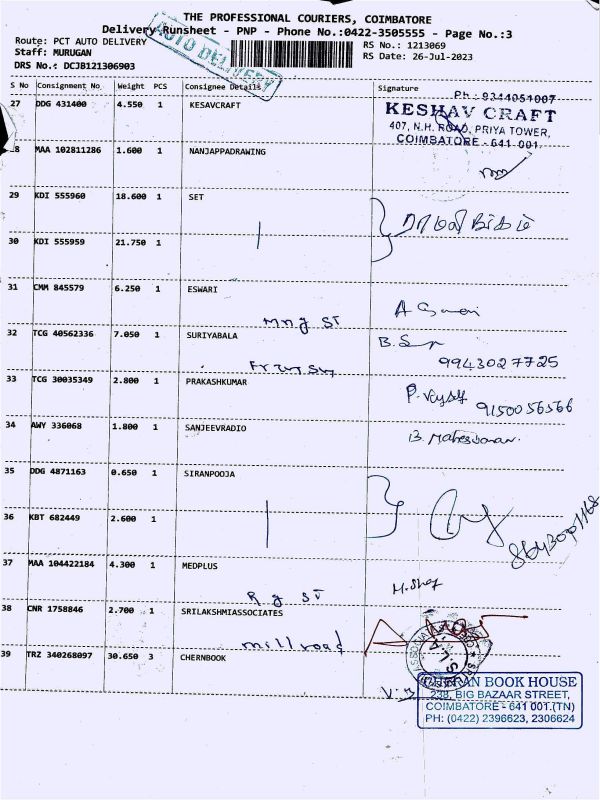 THE PROFESSIONAL COURIERS, COIMBATORE
Delivery Runsheet - PNP - Phone No.:0422-3505555 - Page No.:3
Route: PCT AUTO DELIVERY
RS No.: 1213069
Staff: MURUGAN
RS Date: 26-Jul-2023
DRS No.: DCJB121306903
AUTO DELIVERY
S No Consignment No Weight PCS Consignee Details Signature
27 DDG 431400 4.550 1 KESAVCRAFT
Ph : 9344051007
KESHAV CRAFT
407, N.H. ROAD, PRIYA TOWER,
COIMBATORE - 641 001.
28 MAA 102811286 1.600 1 NANJAPPADRAWING
29 KDI 555960 18.600 1 SET
30 KDI 555959 21.750 1
31 CMM 845579 6.250 1 ESWARI
32 TCG 40562336 7.050 1 SURIYABALA
9943027725
33 TCG 30035349 2.800 1 PRAKASHKUMAR
9150056566
34 AWY 336068 1.800 1 SANJEEVRADIO
B. Maheswaran.
35 DDG 4871163 0.650 1 SIRANPOOJA
36 KBT 682449 2.600 1
37 MAA 104422184 4.300 1 MEDPLUS
R g ST
38 CNR 1758846 2.700 1 SRILAKSHMIASSOCIATES
mill road
39 TRZ 340268097 30.650 3 CHERNBOOK
BOOK HOUSE
238, BIG BAZAAR STREET,
COIMBATORE - 641 001.(TN)
PH: (0422) 2396623, 2306624